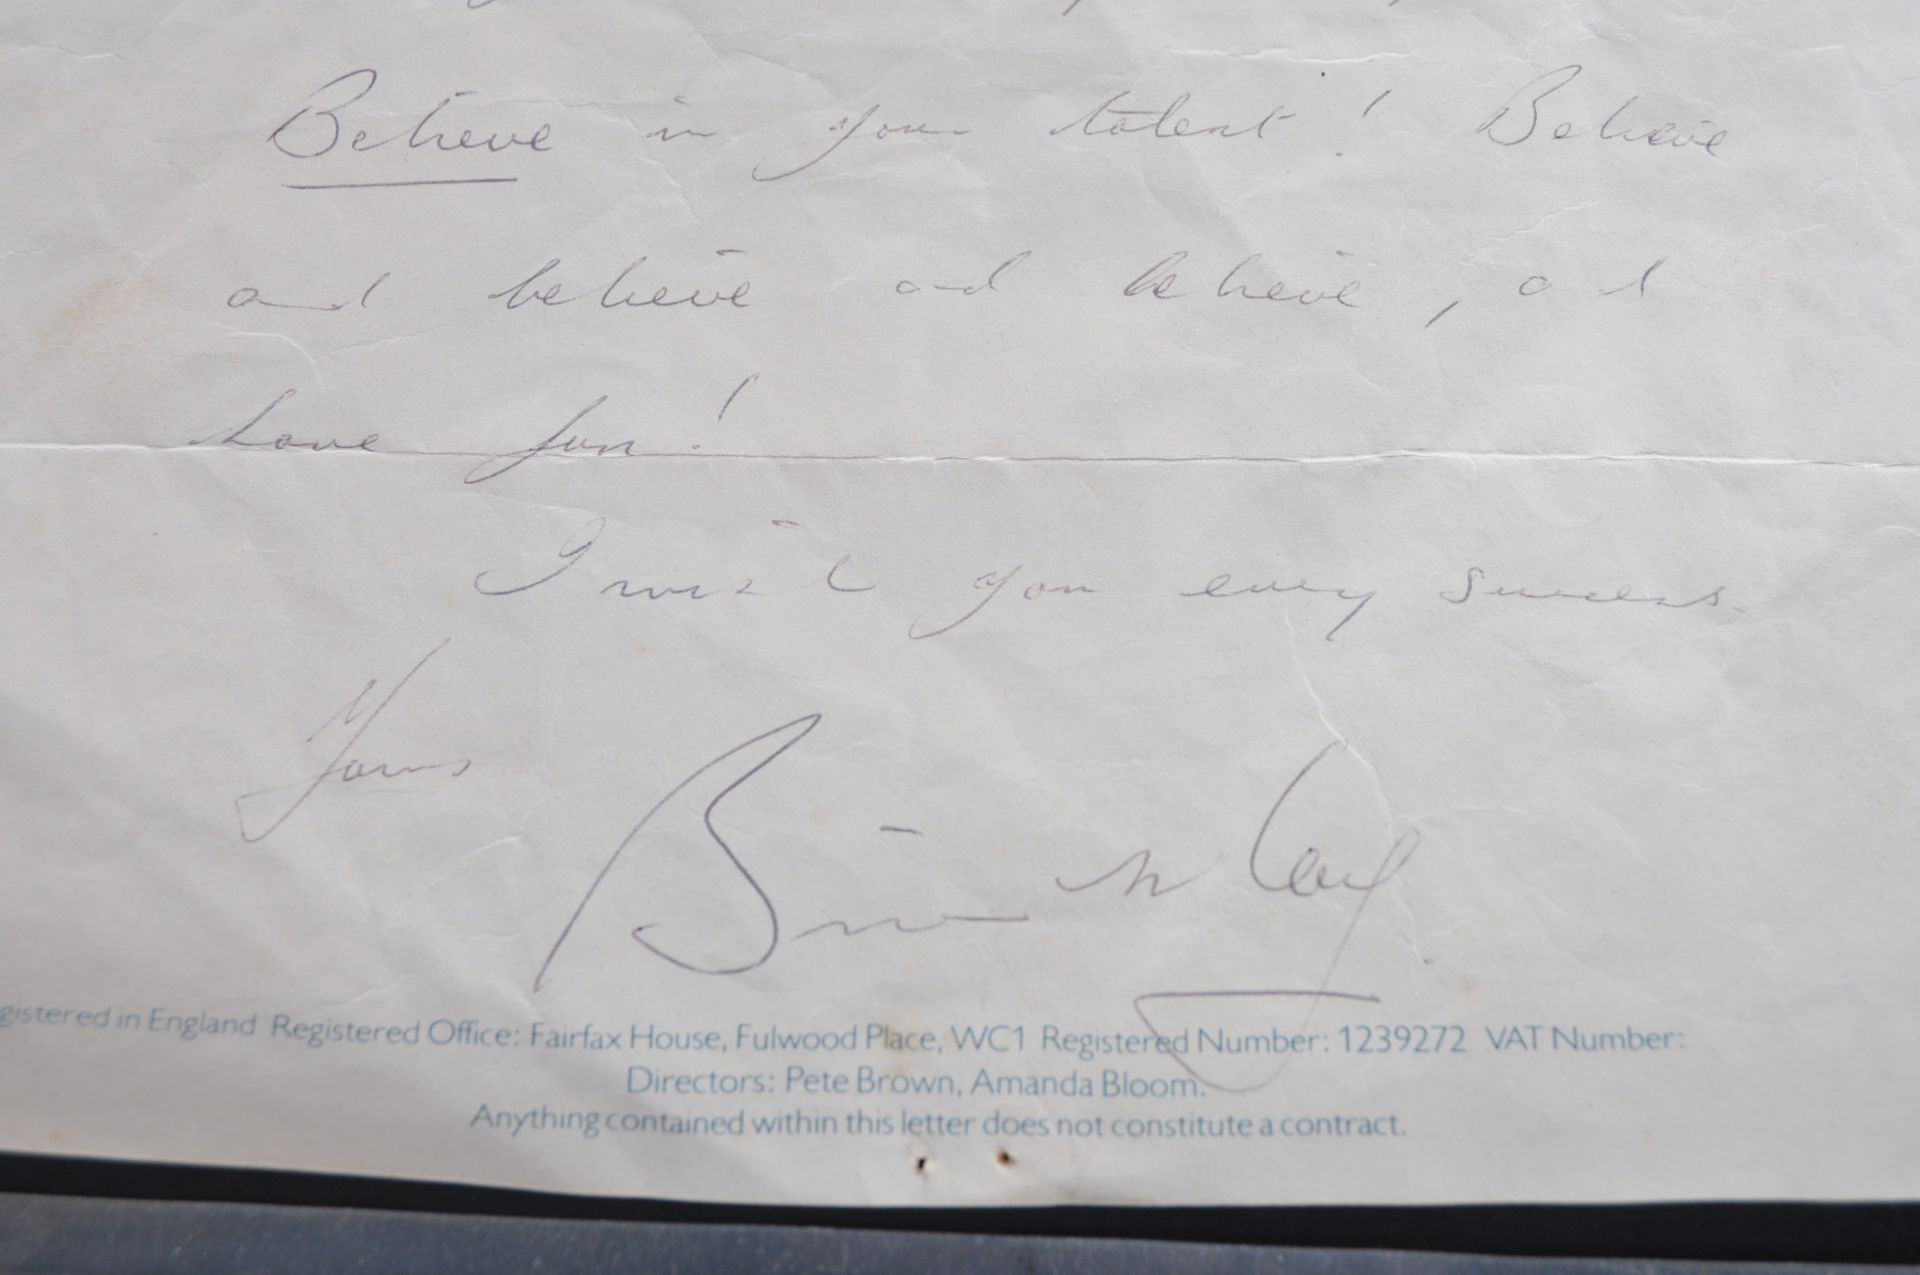 Believe in your talent! Believe
and believe and believe, and
have fun!
I wish you every success.
Yours
gistered in England Registered Office: Fairfax House, Fulwood Place, WC1 Registered Number: 1239272 VAT Number:
Directors: Pete Brown, Amanda Bloom.
Anything contained within this letter does not constitute a contract.